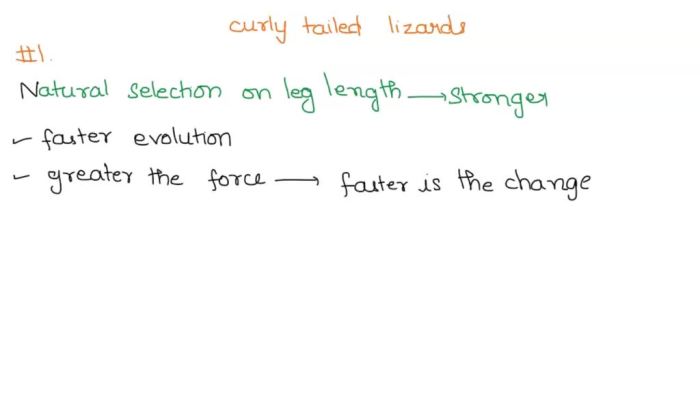 curly tailed lizards
#1.
Natural selection on leg length → stronger
✓ faster evolution
✓ greater the force → faster is the change